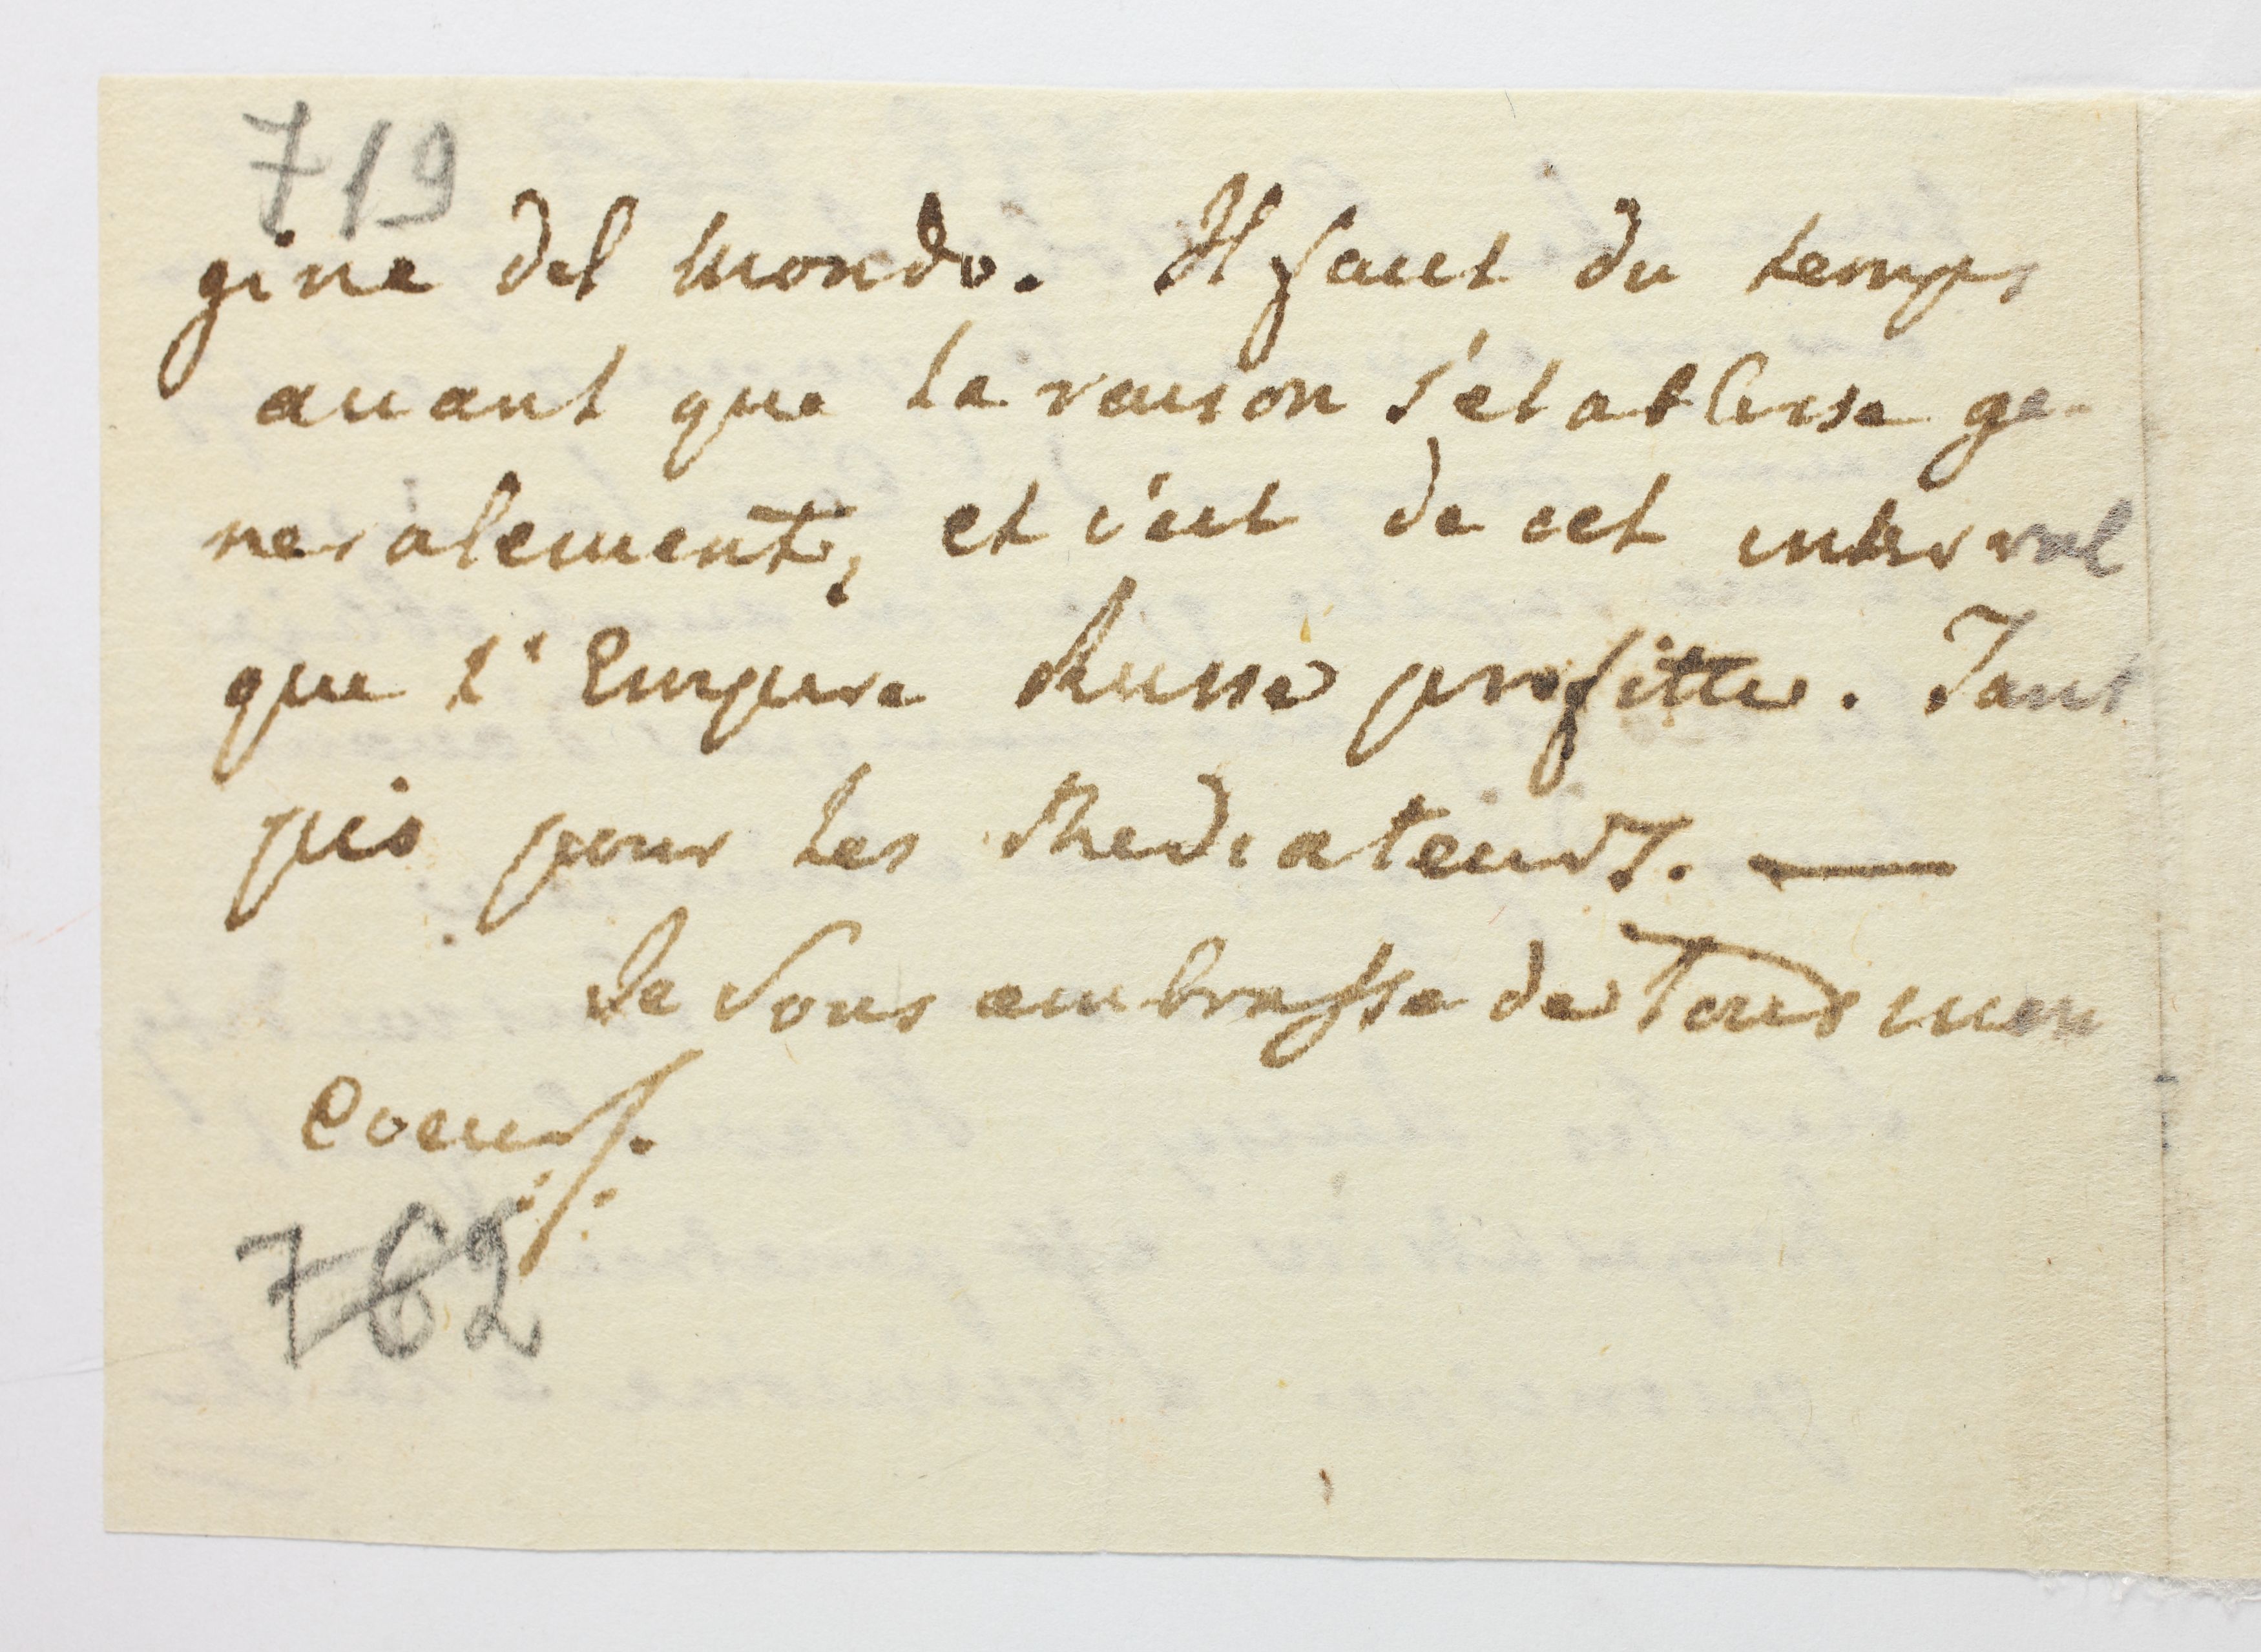 719
gine del mondo. Il faut du temps
auant que la raison s'etablisse ge-
neralement, et c'est de cet interval
que l'Empire Russe profitte. Tant
pis pour les Mediateurs. —
Je Vous embrasse de Tout mon
Coeur.
762